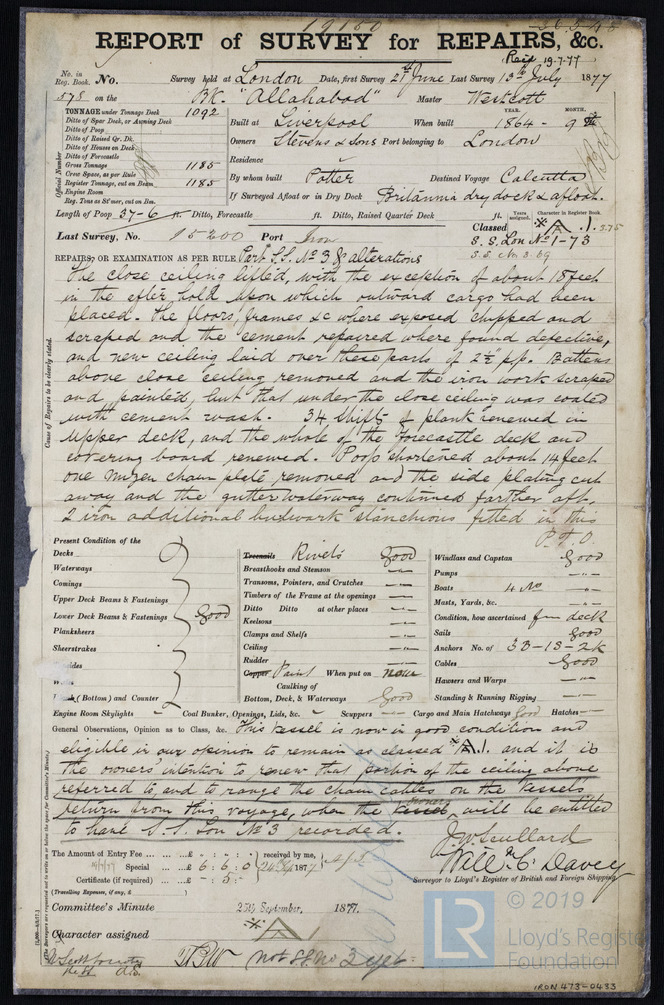 19150
REPORT of SURVEY for REPAIRS, &c.
Recd 19.7.77
No. in Reg. Book. No. Survey held at London Date, first Survey 21st June Last Survey 13th July 1877
578 on the BK. "Allahabad" Master Westcott
TONNAGE under Tonnage Deck 1092
Ditto of Spar Deck, or Awning Deck
Ditto of Poop
Ditto of Raised Qr. Dk.
Ditto of Houses on Deck
Ditto of Forecastle
Gross Tonnage 1185
Crew Space, as per Rule
Register Tonnage, cut on Beam 1185
Engine Room
Reg. Tons as St'mer, cut on Bea.
Official Number
YEAR. MONTH.
Built at Liverpool When built 1864 - 9
Owners Stevens & Sons Port belonging to London
Residence
By whom built Potter Destined Voyage Calcutta
If Surveyed Afloat or in Dry Dock Britannia dry dock & afloat.
Length of Poop 37-6 ft. Ditto, Forecastle ft. Ditto, Raised Quarter Deck ft.
Years assigned. Character in Register Book
Classed A.1. 3.75
Last Survey, No. 15200 Port Iron S.S. Lon No 1-73
S.S. No 3.69
REPAIRS, OR EXAMINATION AS PER RULE, Part S.S. No 3 & alterations
Cause of Repairs to be clearly stated.
The close ceiling lifted, with the exception of about 18 feet
in the after hold upon which outward cargo had been
placed. The floors, frames &c where exposed chipped and
scraped and the cement repaired where found defective,
and new ceiling laid over these parts of 2½" p.p. Battens
above close ceiling removed and the iron work scraped
and painted, but that under the close ceiling was coated
with cement wash. 34 shifts of plank renewed in
Upper deck, and the whole of the Forecastle deck and
covering board renewed. Poop shortened about 14 feet
one mizen chain plate removed and the side plating cut
away and the gutter waterway continued farther aft.
2 iron additional bulwork stanchions fitted in this
P.T.O.
Present Condition of the
Decks
Waterways
Comings
Upper Deck Beams & Fastenings
Lower Deck Beams & Fastenings Good
Planksheers
Sheerstrakes
(Bottom) and Counter
Treenails Rivets Good
Breasthooks and Stemson
Transoms, Pointers, and Crutches
Timbers of the Frame at the openings
Ditto Ditto at other places
Keelsons
Clamps and Shelfs
Ceiling
Rudder
Copper Paint When put on now
Caulking of
Bottom, Deck, & Waterways Good
Windlass and Capstan Good
Pumps
Boats 4 No
Masts, Yards, &c.
Condition, how ascertained from deck
Sails Good
Anchors No. of 3B-1S-2K
Cables Good
Hawsers and Warps
Standing & Running Rigging
Engine Room Skylights Coal Bunker, Openings, Lids, &c. Scuppers Cargo and Main Hatchways Good Hatches
General Observations, Opinion as to Class, &c. This Vessel is now in good condition and
eligible in our opinion to remain as classed A.1. and it is
the owners' intention to renew that portion of the ceiling above
referred to, and to range the chain cables on the vessel's
return from this voyage, when the vessel will be entitled
to have S.S. Lon No 3 recorded.
J.W. Scullard
Will. C. Davey
Surveyor to Lloyd's Register of British and Foreign Shipping.
The Amount of Entry Fee ... £ - : - : - received by me,
Special ... £ 6 : 6 : 0
Certificate (if required) ... £ - : 5 : -
(Travelling Expenses, if any, £ )
Committee's Minute 25th September, 1877.
Character assigned A
not SS No 3
© 2019
LR
Lloyd's Register
Foundation
IRON 473-0483